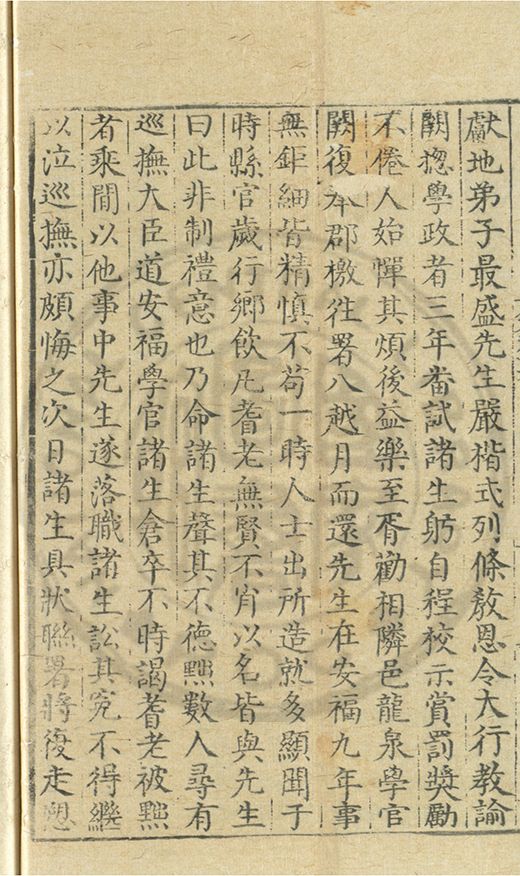 獻地弟子最盛先生嚴楷式列條敎恩令大行教諭
闕摠學政者三年畨試諸生躬自程校示賞罰奬勵
不倦人始憚其煩後益樂至胥勸相隣邑龍泉學官
闕復夲郡檄徃署八越月而還先生在安福九年事
無鉅細皆精慎不苟一時人士出所造就多顯聞于
時縣官歲行鄉飲凡耆老無賢不肖以名皆與先生
曰此非制禮意也乃命諸生聲其不德黜數人尋有
巡撫大臣道安福學官諸生倉卒不時謁耆老被黜
者乘間以他事中先生遂落職諸生訟其寃不得繼
以泣巡撫亦頗悔之次日諸生具狀聯署將復走愬